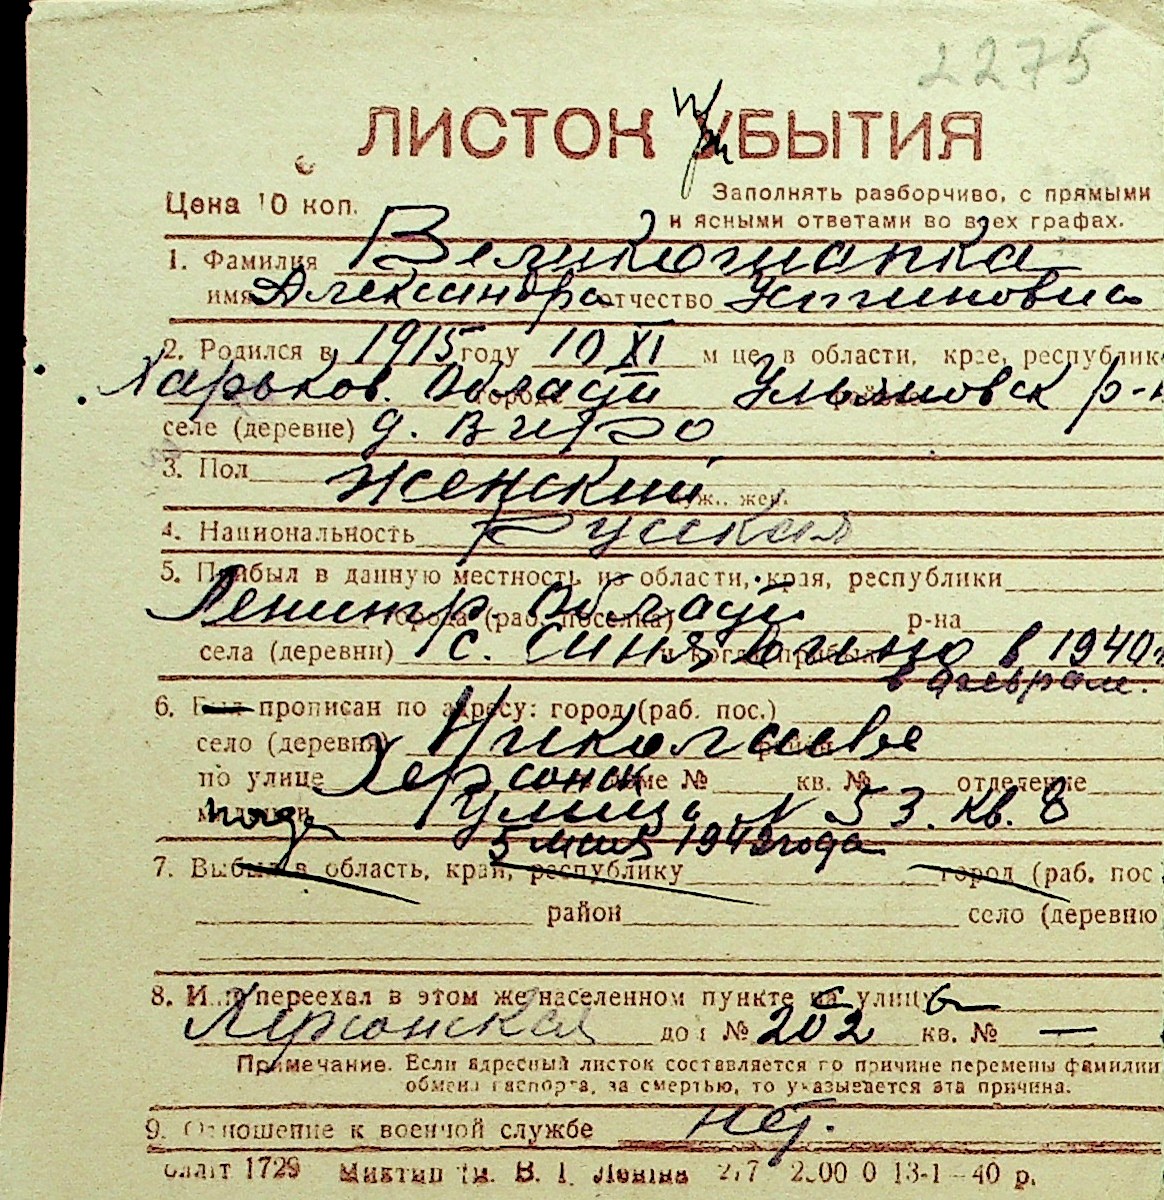 2275
ЛИСТОК УБЫТИЯ
Цена 10 коп.
Заполнять разборчиво, с прямыми
и ясными ответами во всех графах.
1. Фамилия Великошапка
имя Александра отчество Устиновна
2. Родился в 1915 году 10 XI м-це, в области, крае, республике
Харьков. области Ульяновск р-н
селе (деревне) д.
3. Пол женский муж., жен.
4. Национальность Русская
5. Прибыл в данную местность из области, края, республики
Ленингр. области города (раб. поселка) р-на
села (деревни) с. Синявино и когда прибыл в 1940 г
в феврале.
6. Был прописан по адресу: город (раб. пос.)
село (деревня) Николаеве район
по улице Херсонск доме № кв. № отделение
милиции улица N 53. кв. 8
5 мая 1942 года
7. Выбыл в область, край, республику город (раб. пос
район село (деревню
8. Или переехал в этом же населенном пункте на улицу
Херсонская дом № 202 кв. № —
Примечание. Если адресный листок составляется по причине перемены фамилии
обмена паспорта, за смертью, то указывается эта причина.
9. Отношение к военной службе нет.
1729 им. В. И. Ленина 13-1—40 р.